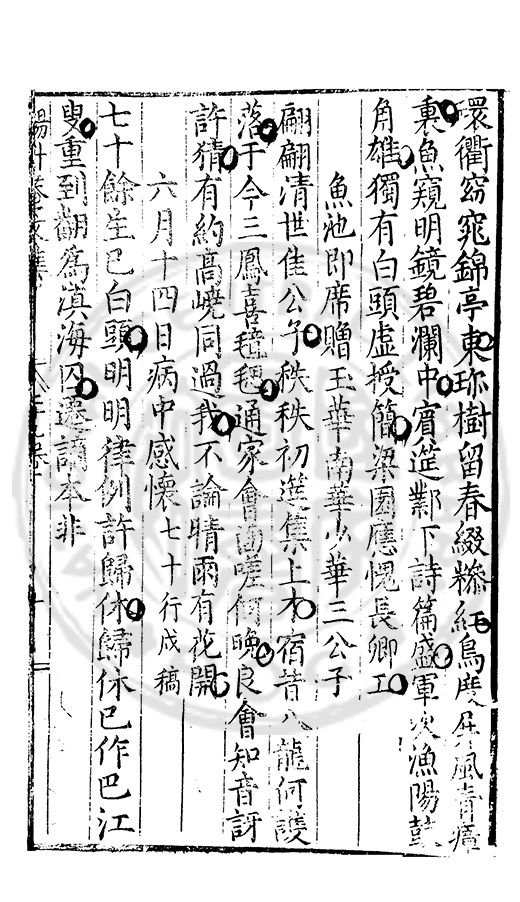 環衢窈窕錦亭東珎樹留春綴糝紅鳥度屏風青瘴
裏魚窺明鏡碧瀾中賓筵鄴下詩篇盛軍次漁陽鼓
角雄獨有白頭虛授簡梁園應愧長卿工
魚池即席贈玉華南華少華三公子
翩翩清世佳公子秩秩初筵集上才宿昔八龍何謖
落于今三鳳喜毰毸通家會面嗟何晚良會知音訝
許猜有約高嶢同過我不論晴雨有花開
六月十四日病中感懷七十行戍稿
七十餘生已白頭明明律例許歸休歸休已作巴江
叟重到翻爲滇海囚遷謫本非